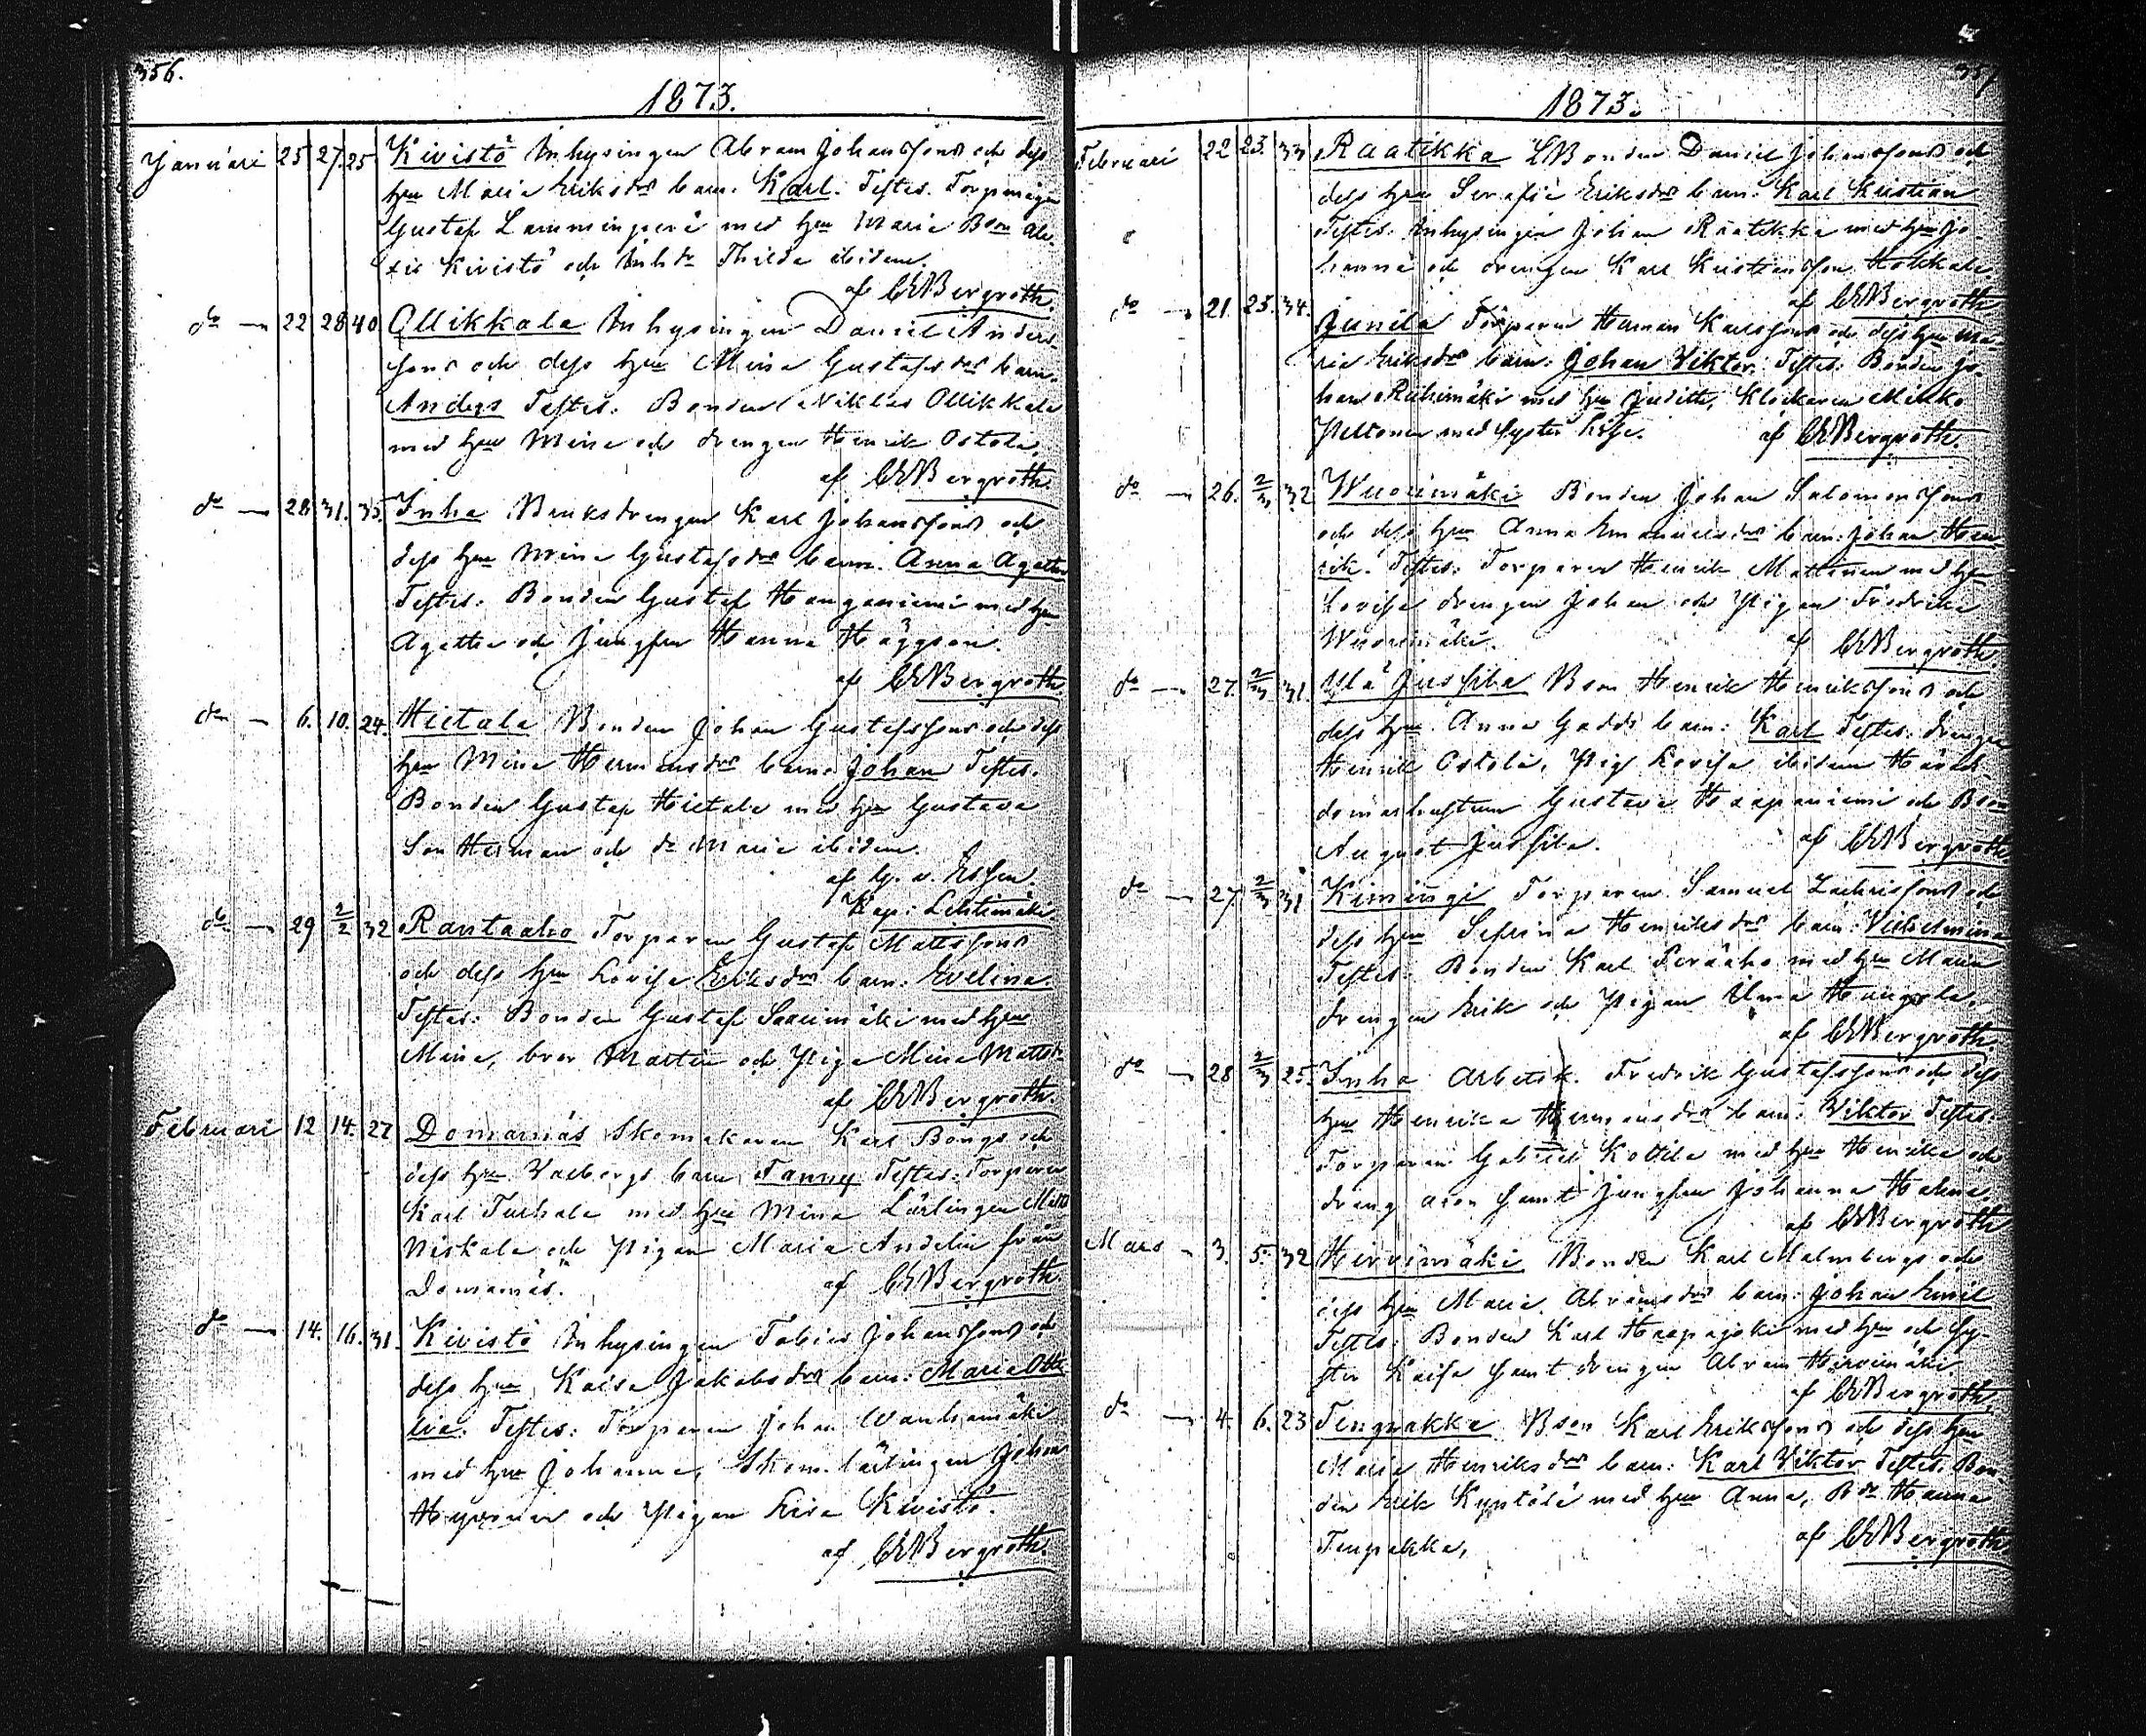 356.
1873.
Januari 25 27. 25 Kivistö Inhysingen Abram Johanssons och dess
hu Maria Eriksdrs barn: Karl. Testes. Torparen
Gustaf Lamminperä med hu Maria Bson
Kivistö och Inhdr Thilda ibidem.
af CEBergroth.
do — 22 28 40 Ollikkala Inhysingen Daniel Anders-
sons och dess hu Mina Gustafsdrs barn.
Anders Testes: Bonden Niklas Ollikkala
med hu Mina och drengen Henrik Ostola.
af CEBergroth.
do — 28 31. 35. Inha Bruksdrengen Karl Johanssons och
dess hu Mina Gustafsdrs barn. Anna Agatha
Testes: Bonden Gustaf Hanganiemi med hu
Agatha och Jungfru Hanna Häggson.
af CEBergroth
do — 6. 10. 24. Hietala Bonden Johan Gustafssons och dess
hu Mina Hermansdrs barn. Johan Testes.
Bonden Gustaf Hietala med hu Gustava
Son Herman och dr Maria ibidem.
af G. v. Essen
Kap: Lehtimäki
do — 29 2/2 32 Rantaaho Torparen Gustaf Mattssons
och dess hu Lovisa Eriksdrs barn: Evelina.
Testes: Bonden Gustaf Saarimäki med hu
Mina, bror Martin och Piga Mina Mattsdr
af CEBergroth.
Februari 12 14. 27 Domarnäs Skomakaren Karl Bongs och
dess hu Valborgs barn Fanny Testes: Torparen
Karl Turhala med hu Mina Lärlingen
Niskala och Pigan Maria Andelin från
Domarnäs. af CEBergroth
do — 14. 16. 31. Kivistö Inhysingen Tobias Johanssons och
dess hu Kaisa Jakobsdrs barn: Maria Oti-
lia. Testes: Torparen Johan Wanhamäki
med hu Johanna, Skom. lärlingen Johan
och Pigan Kivistö.
af CEBergroth.
357
1873.
Februari 22 23. 33 Raatikka LBonden Daniel Johanssons och
dess hu Serafia Eriksdrs barn: Karl Kristian
Testes: Inhysingen Johan Raatikka med hu Jo-
hanna och drengen Karl Kristiansson Hokkala.
af CEBergroth
do — 21. 23. 34. Junila Torparen Herman Karlssons och dess hu Ma-
ria Eriksdrs barn: Johan Viktor. Testes: Bonden Jo-
han Riihimäki med hu Judith, Klockaren
Peltonen med Syster af CEBergroth.
do — 26. 2/3 32 Wuorimäki Bonden Johan Salomonssons
och dess hu Anna Emanuelsdrs barn: Johan Hen-
rik. Testes: Torparen Henrik Mattinen med hu
Lovisa drengen Johan och Pigan Fredrika
Wuorimäki. af CEBergroth.
do — 27. 2/3 31. Ylä Jussila Bson Henrik Henrikssons och
dess hu Anna Gadds barn: Karl Testes: drengen
Henrik Ostola, Pig Lovisa ibidem Härads-
domarhustrun Gustava Haapaniemi och Bson
August Jussila. af CEBergroth
do — 27 2/3 31 Kimingi Torparen Samuel Zachrissons och
dess hu Sefrina Henriksdrs barn: Vilhelmina
Testes: Bonden Karl Peräaho med hu Maria
drengen Erik och Pigan Ulma
af CEBergroth.
do — 28 2/3 25. Inha Arbetsk. Fredrik Gustafssons och dess
hu Henrika Hermansdrs barn: Viktor Testes:
Torparen Gabriel Kottila med hu Henrika och
dräng Aron samt jungfru Johanna Hakna.
af CEBergroth
Mars — 3. 5. 32 Hirvimäki Bonden Karl Malmbergs och
dess hu Maria Abramsdrs barn: Johan Emil
Testes: Bonden Karl Haapajoki med hu och Sy-
ster Kaisa samt drengen Abram Hirvimäki
af CEBergroth.
do — 4. 6. 23 Tengpakka Bson Karl Erikssons och dess hu
Maria Henriksdrs barn: Karl Viktor Testes: Bon-
den Erik Kyntölä med hu Anna, Bdr Hanna
Tengpakka, af CEBergroth